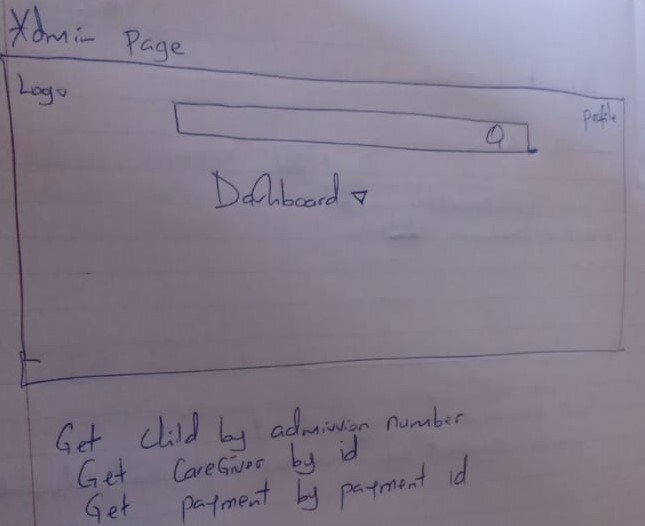 Admin Page
Logo
profile
Dashboard
Get child by admission number
Get CareGiver by id
Get payment by payment id